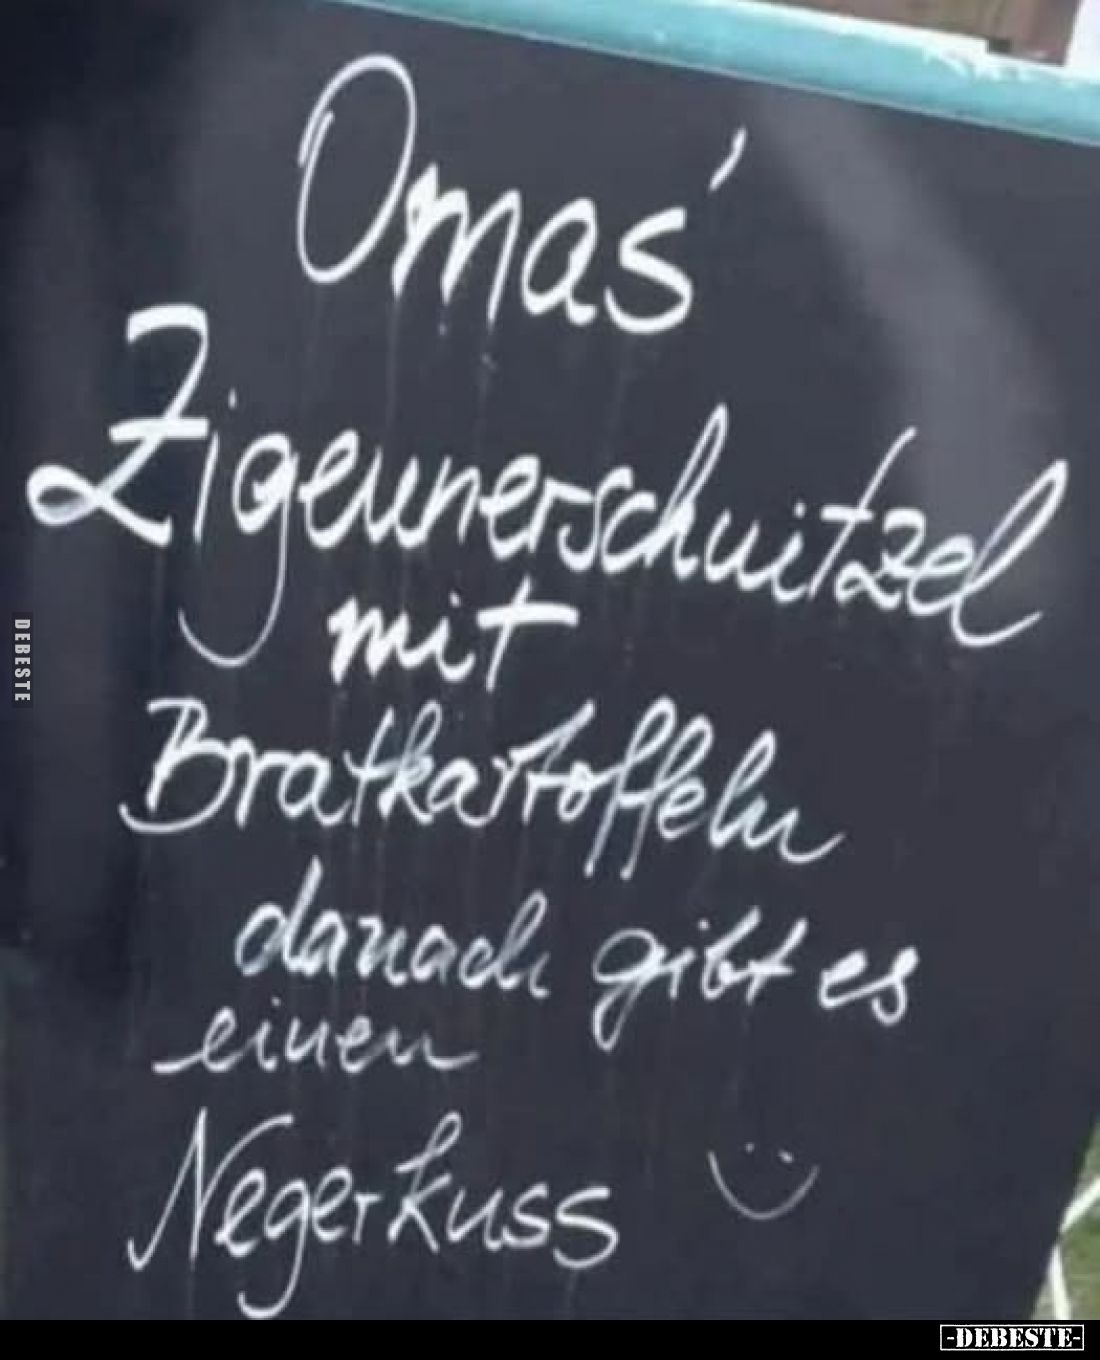 Omas'
Zigeunerschnitzel
mit
Bratkartoffeln
danach gibt es
einen
Negerkuss
DEBESTE
-DEBESTE-